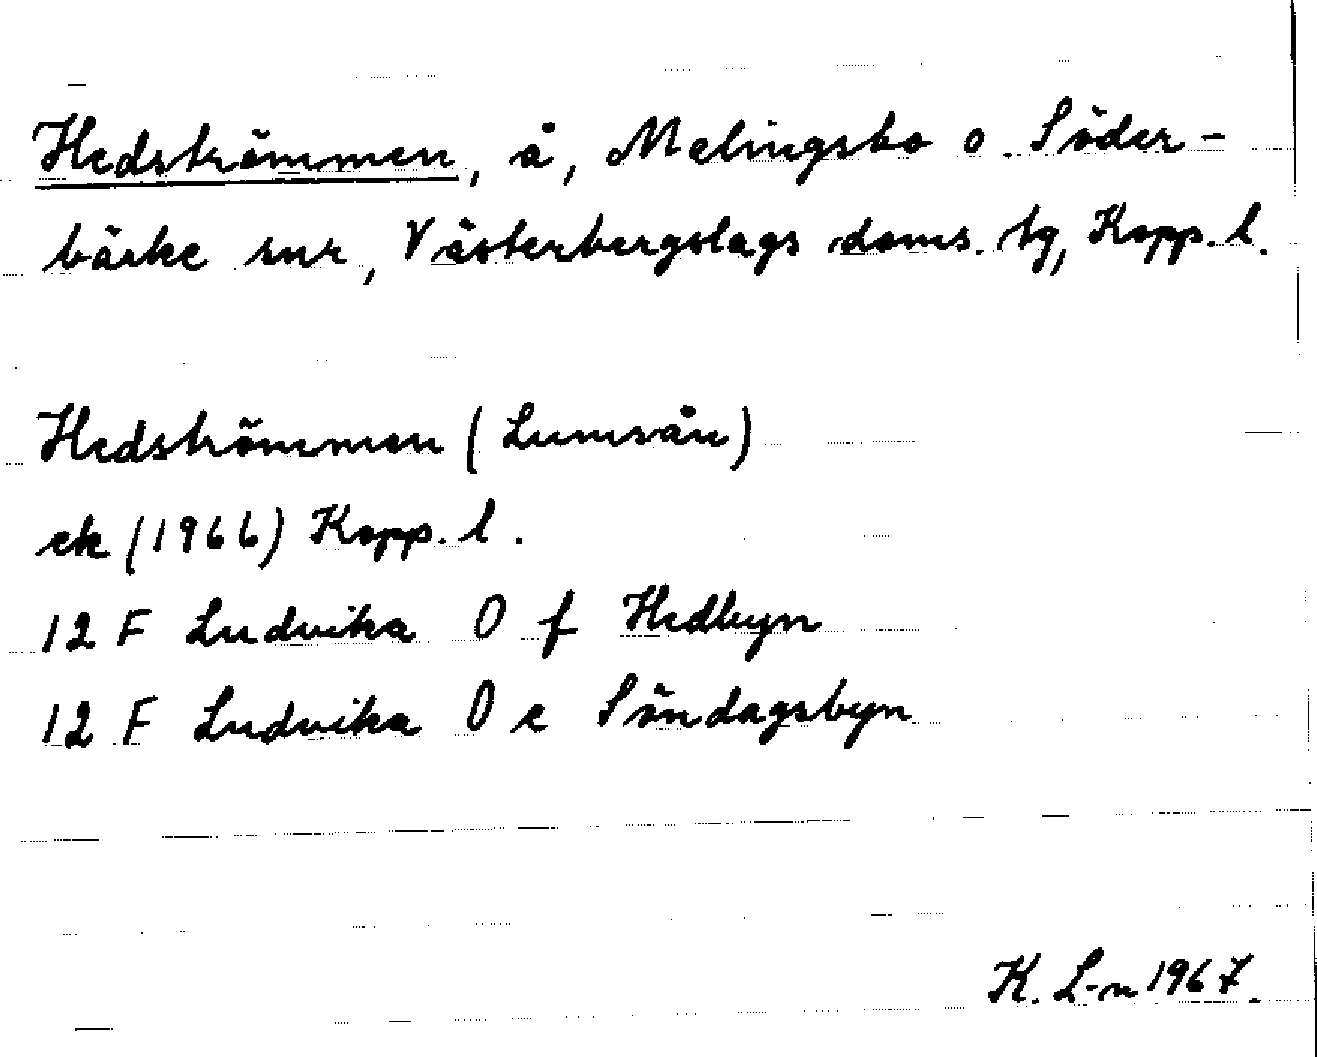 Hedströmmen, å, Malingsbo o. Söder-
bärke snr, Västerbergslags doms. tg, Kopp. l.
Hedströmmen (Lumsån)
ek (1966) Kopp. l.
12 F Ludvika 0 f Hedbyn
12 F Ludvika 0 e Söndagsbyn
K. L-n 1967.